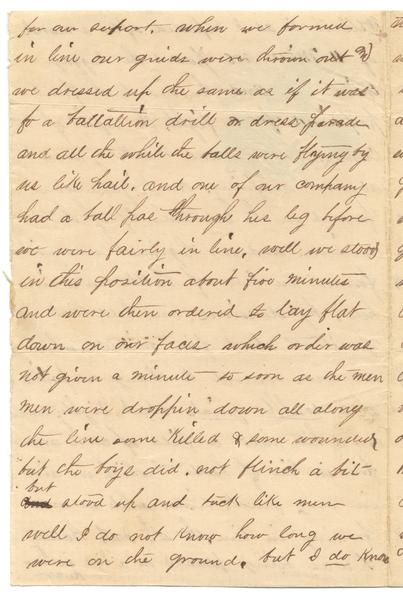 for our suport. when we formed
in line our guids were thrown out &
we dressed up the same as if it was
fo a battallion drill or dress parade
and all the while the balls were flying by
us like hail. and one of our company
had a ball pas through his leg before
we were fairly in line. well we stood
in this position about five minutes
and were then ordered to lay flat
down on our faces which order was
not given a minute to soon as the men
men were droppin down all along
the line some killed & some wounded
but the boys did not flinch a bit
but
stood up and tuck like men
well I do not know how long we
were on the ground. but I do know